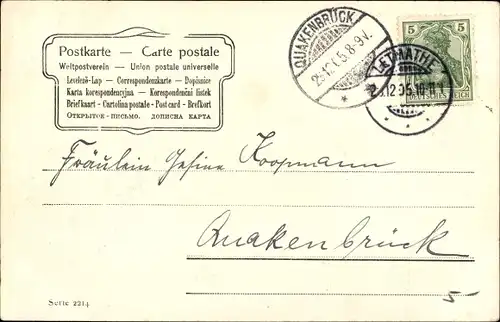 Postkarte — Carte postale
Weltpostverein — Union postale universelle
Levelező-Lap — Correspondenzkarte — Dopisnice
Karta korespondencyjna — Korespondenční lístek
Briefkaart - Cartolina postale - Post card - Brefkort
Открытое - письмо. дописна карта
QUAKENBRÜCK
5
5
LETMATHE
Fräulein Gesine Koopmann
Quakenbrück
5
Serie 2214